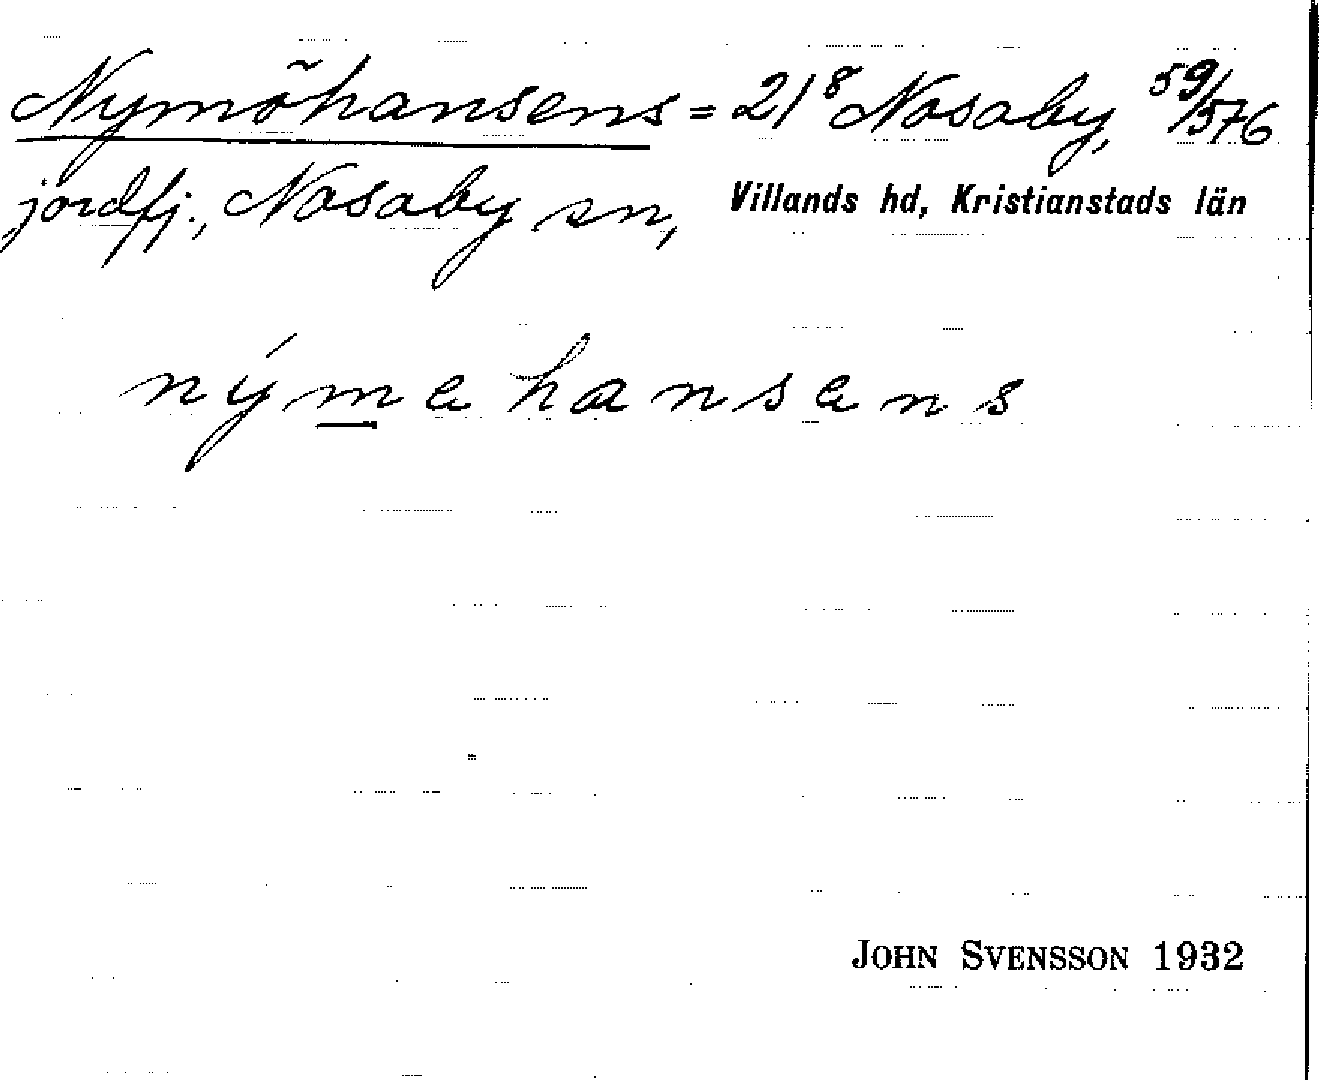 Nymöhansens = 21⁸ Nosaby, 59/576
jordfj., Nosaby sn, Villands hd, Kristianstads län
nýmahansans
JOHN SVENSSON 1932